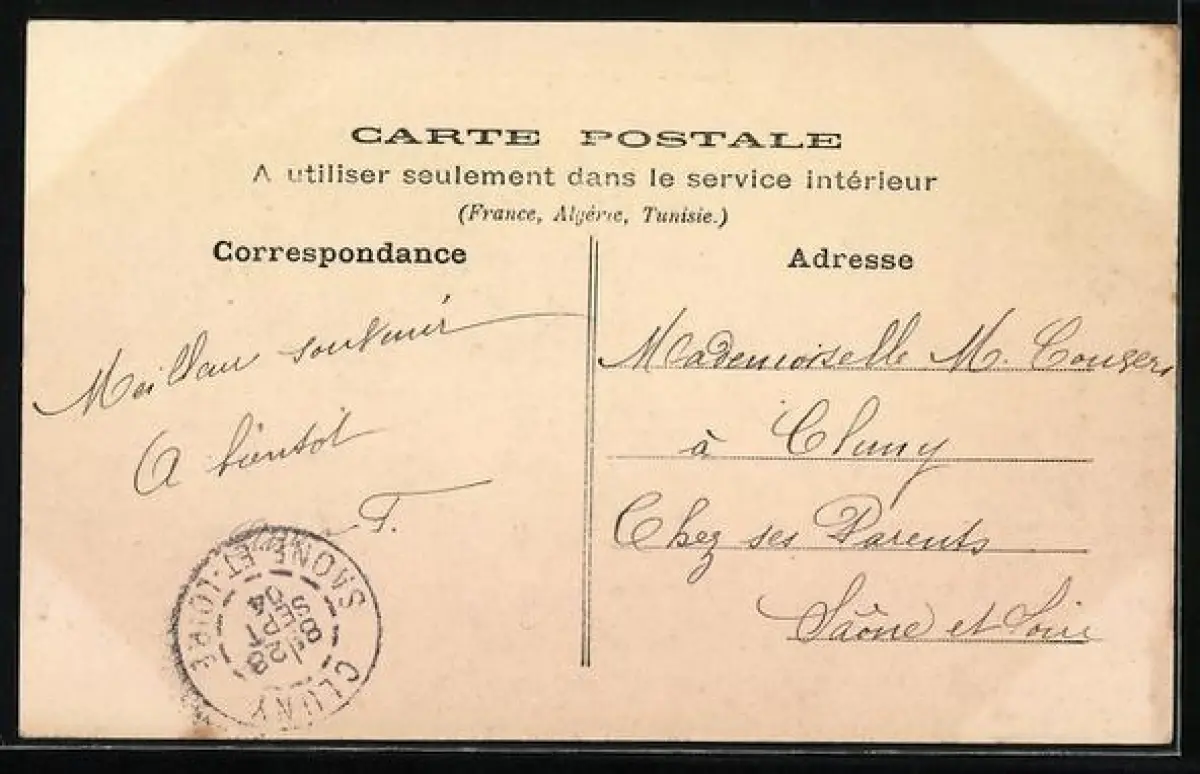 CARTE POSTALE
A utiliser seulement dans le service intérieur
(France, Algérie, Tunisie.)
Correspondance
Adresse
Meilleur souvenir
A bientôt
F.
Mademoiselle M.
à Cluny
Chez ses Parents
Saône et Loire
CLUNY
SAONE-ET-LOIRE
28
SEPT
04